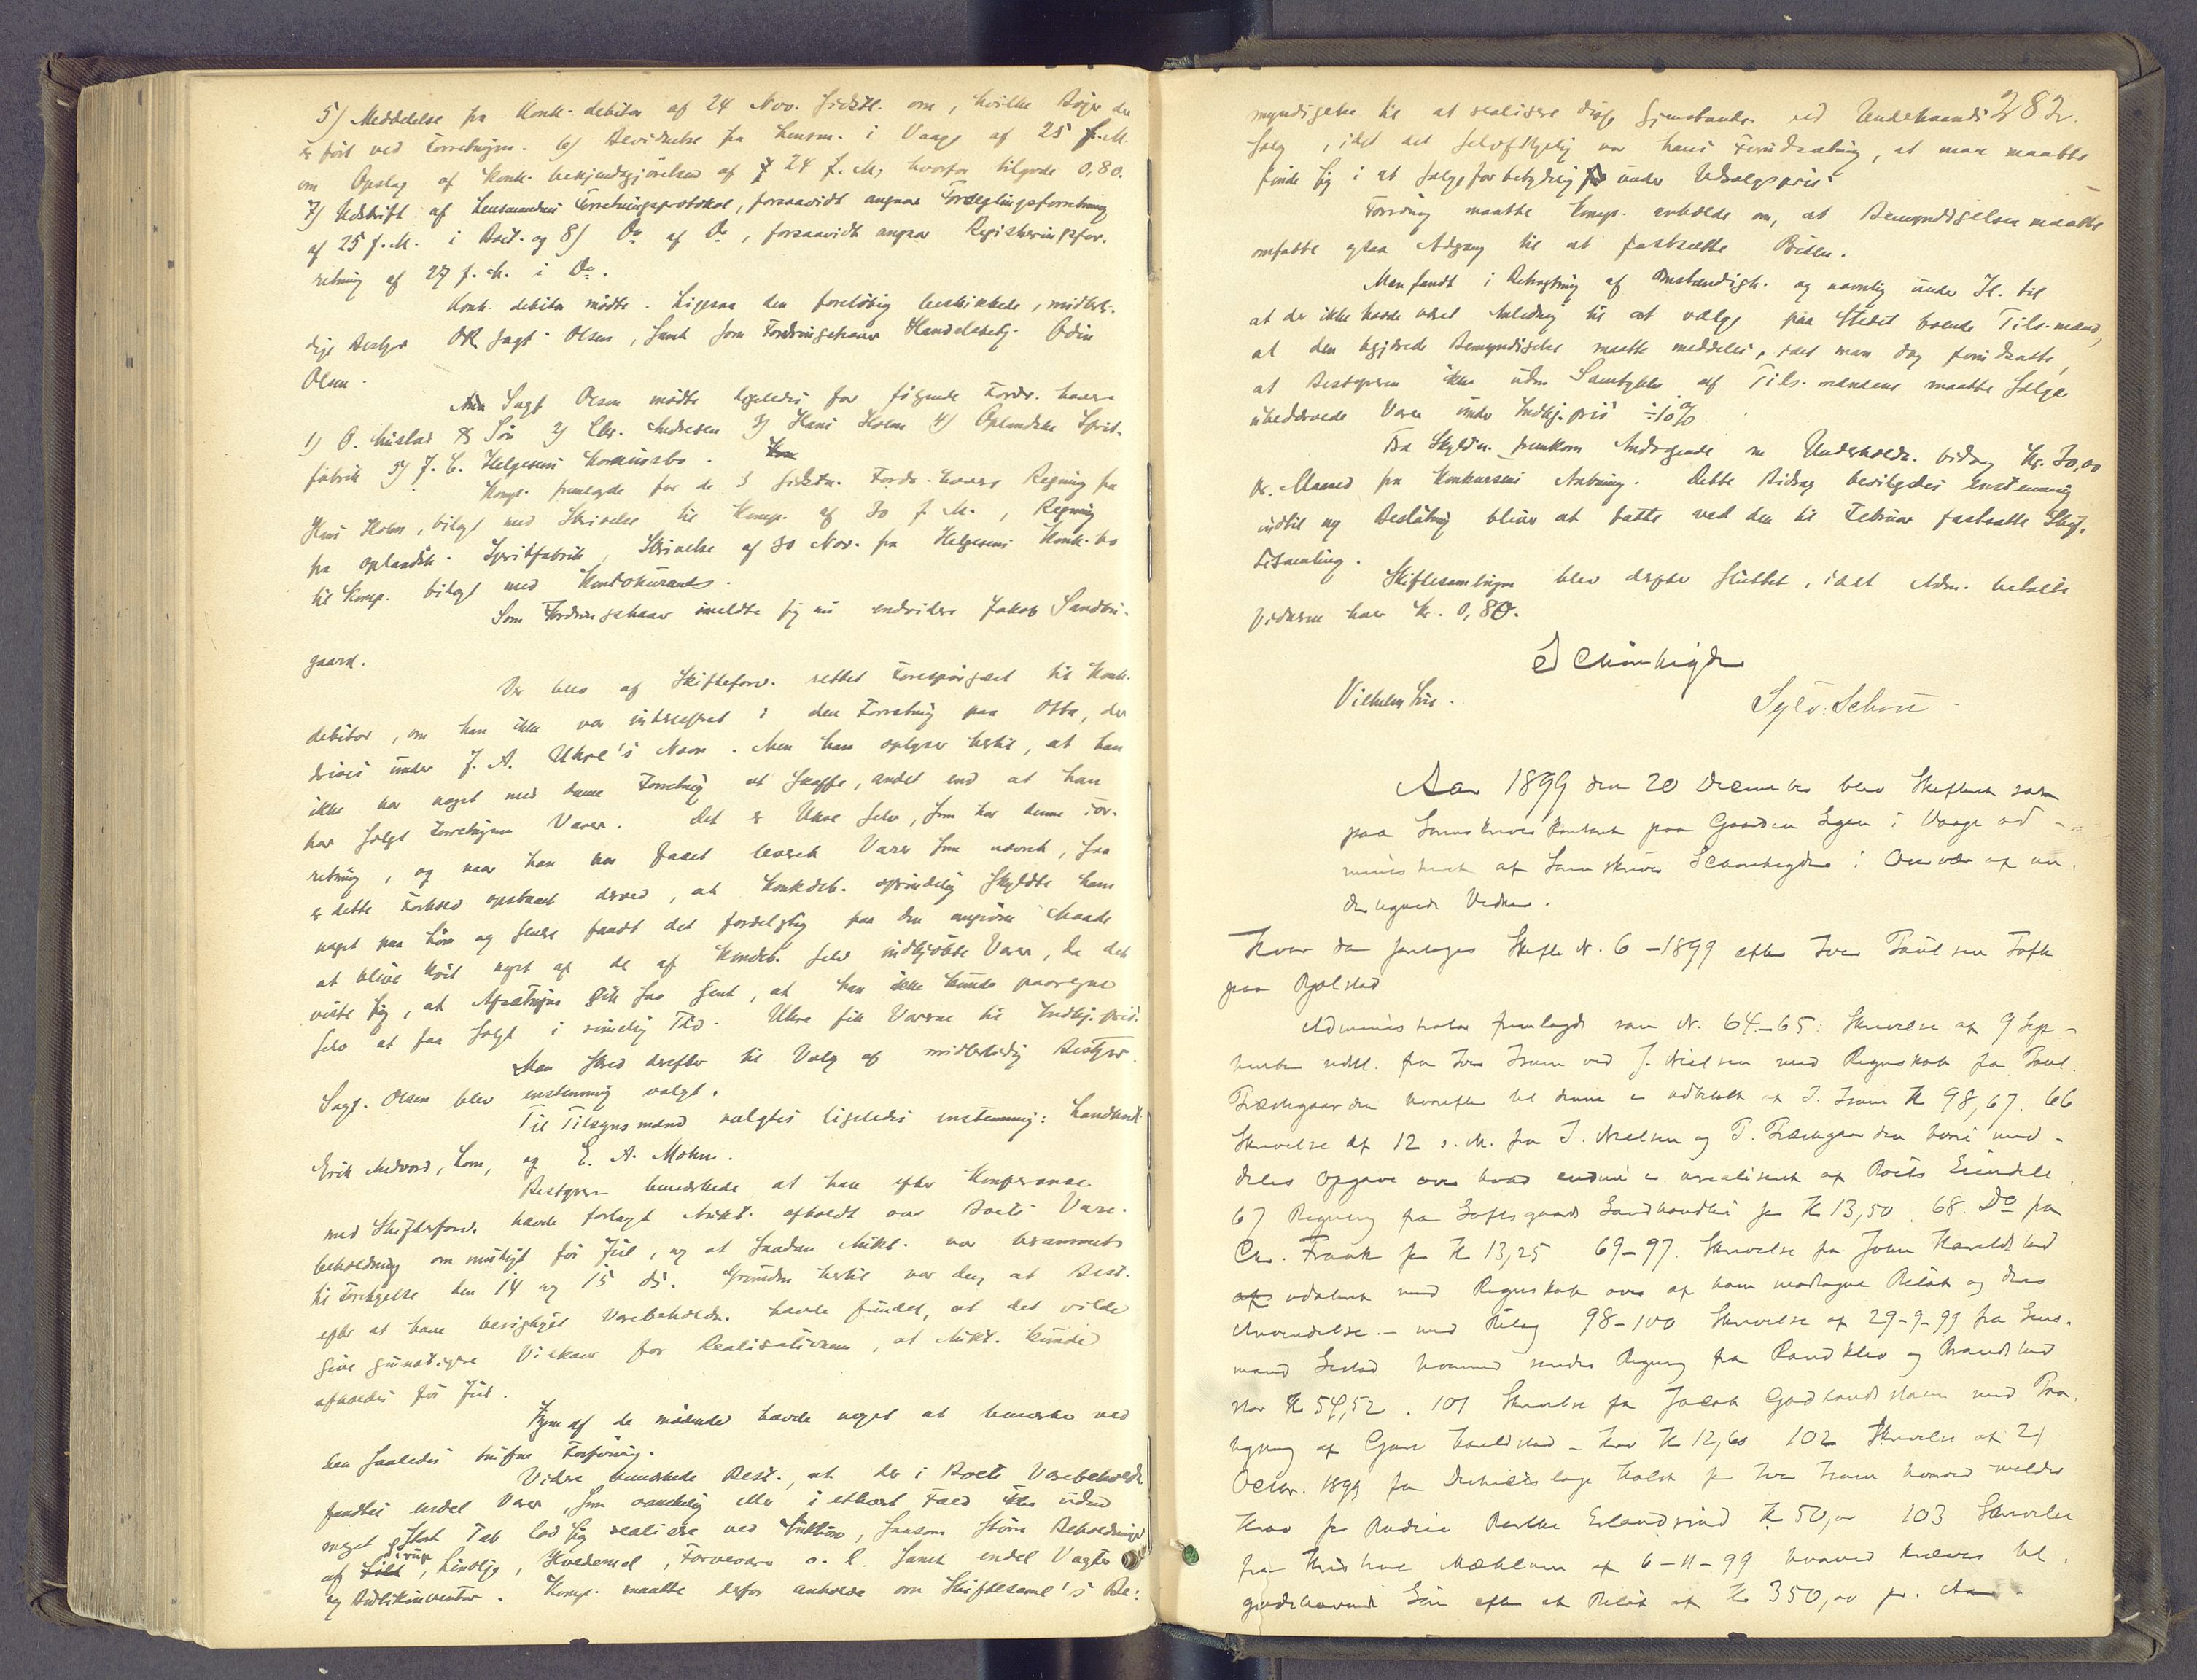 5) Meddelelse fra Konk.debitor af 24 Nov. sidstl. om, hvilke Bøger der
er ført ved Forretningen. 6) Bevidnelse fra Lensm. i Vaage af 25 f.M.
om Opslag af Konk. bekjendtgjørelsen af 24 f.M., hvorfor tilgode 0,80.
7) Udskrift af Lensmandens Forretningsprotokol, forsaavidt angaar Forseglingsforretning
af 25 f.M. i Boet. og 8) Do af Do, forsaavidt angaar Registreringsfor-
retning af 27 f.M. i Do.
Konk. debitor mødte. Ligesaa den foreløbig beskikkede, midlerti-
dige Bestyrer OR Sagf. Olsen, samt som Fordringshaver Handelsbetj. Odin
Olsen.
Sagf Olsen mødte ligeledes for følgende Fordr. havere
1) O. Mustad & Søn 2) Chr. Andresen 3) Hans Holm 4) Oplandske Sprit-
fabrik 5) J. C. Helgesens Konkursbo.
Komp. fremlagde for de 3 sidstn. Fordr. havere Regning fra
Hans Holm, bilagt med Skrivelse til Komp. af 30 f.M., Regning
fra Oplandsk. Spritfabrik, Skrivelse af 30 Nov. fra Helgesens Konk.bo
til Komp. bilagt med Kontokurant.
Som Fordringshaver meldte sig nu endvidere Jakob Sandbu-
gaard.
Der blev af Skifteforv. rettet Forespørgsel til Konk.
debitor, om han ikke var interesseret i den Forretning paa Otta, der
drives under J. A. Ukre's Navn. Men han oplyser hertil, at han
ikke har noget med denne Forretning at skaffe, andet end at han
har solgt Forretningen Varer. Det er Ukre selv, som har denne For-
retning, og naar han har faaet leveret Varer som nævnt, saa
er dette Forhold opstaaet derved, at Konkdeb. oprindelig skyldte ham
noget paa Løn og senere fandt det fordelagtig paa den angivne Maade
at blive kvit noget af de af Konkdeb. selv indkjøbte Varer, da det
viste sig, at Afsætningen gik saa sent, at han ikke kunde paaregne
selv at faa solgt i rimelig Tid. Ukre fik Varerne til Indkj. pris.
Man skred derefter til Valg af midlertidig Bestyrer.
Sagf. Olsen blev enstemmig valgt.
Til Tilsynsmænd valgtes ligeledes enstemmig: Landhandl.
Erik Andvord, Lom, og E. A. Mohn.
Bestyreren bemærkede at han efter Konferanse
med Skifteforv. havde forlagt Aukt. afholdt over Boets Vare-
beholdning om muligt før Jul, og at saadan Aukt. var berammet
til Foretagelse den 14 og 15 ds. Grunden hertil var den, at Best.
efter at have besigtiget Varebeholdn. havde fundet, at det vilde
give gunstigere Vilkaar for Realisationen, at Aukt. kunde
afholdes før Jul.
Ingen af de mødende havde noget at bemærke ved
den saaledes trufne Forføining.
Videre bemærkede Best., at der i Boets Varebeholdn.
fandtes endel Varer, som vanskelig eller i ethvert Fald ikke uden
meget stort Tab lod sig realisere ved Auktion, saasom større Beholdninger
af Sirup, Linolje, Hvedemel, Farvevarer o. l. samt endel Vægter
og Butikinventar. Komp. maatte derfor anholde om Skiftesaml's Be-
282.
myndigelse til at realisere disse Gjenstande ved Underhaands-
salg, idet det selvfølgelig var hans Forudsætning, at man maatte
finde sig i at sælge forholdsvis under Udsalgspris.
Forøvrig maatte Komp. anholde om, at Bemyndigelsen maatte
omfatte ogsaa Adgang til at fastsætte Prisen.
Man fandt i Betragtning af Omstændigh. og navnlig under H. til
at der ikke havde været Anledning til at vælge paa Stedet boende Tils.mænd,
at den begjærede Bemyndigelse maatte meddeles, idet man dog forudsatte,
at Bestyreren ikke uden Samtykke af Tils. mændene maatte sælge
ubedærvede Varer under Indkj. pris ÷ 10%.
Fra Skyldn. fremkom Andragende om Underholdn. bidrag Kr. 30,00
pr. Maaned fra Konkursens Aabning. Dette Bidrag bevilgedes enstemmig
indtil ny Beslutning bliver at fatte ved den til Februar fastsatte Skif-
tesamling.
Skiftesamlingen blev derpaa sluttet, idet Adm. betalte
Vidnerne hver Kr. 0,80.
Vilhelm Lie.
Sylv. Schou
Aar 1899 den 20 December blev Skifteret sat
paa Sorenskriverkontoret paa Gaarden Sygen i Vaage ad-
ministreret af Sorenskriver i Overvær af un-
dertegnede Vidner.
Hvor da foretoges Skifte N. 6 - 1899 efter Iver Poulsen Tofte
paa Bjølstad
Administrator fremlagde som N. 64-65: Skrivelse af 9 Sep-
tember sidstl. fra Iver Isum ved J. Nielsen med Regnskab fra Poul
Prestegaarden hvorefter til denne er udbetalt af I. Isum Kr 98,67. 66
Skrivelse af 12 s. M. fra J. Nielsen og P. Prestegaarden hvori med-
deles Opgave over hvad endnu er urealiseret af Boets Eiendele.
67 Regning fra Landhandleri for Kr 13,50. 68. Do fra
Chr. Frank for Kr 13,25 69-97. Skrivelse fra Johan
med Regnskab over af ham modtagne Beløb og deres
Anvendelse. - med Bilag 98-100 Skrivelse af 29-9-99 fra Lens-
mand hvormed sendes Regning fra Randklev og
Kr 54,52. 101 Skrivelse fra Jacob med
af Kr 12,60 102 Skrivelse af 21
Octbr. 1899 fra for Iver Isum hvorved meldes
Krav fra Kr 50,00 103 Skrivelse
fra af 6-11-99 hvorved kræves til-
godehavende Løn efter et Beløb af Kr 350,00 pr. Aar.